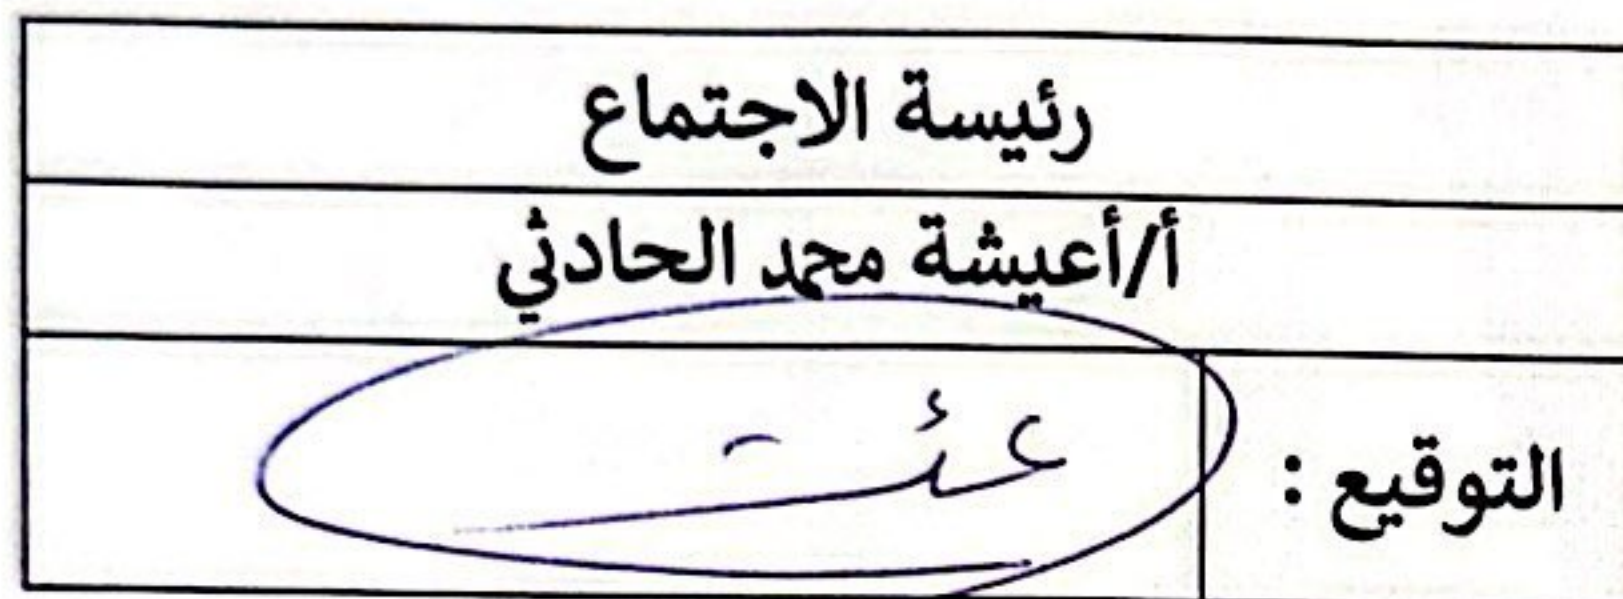 رئيسة الاجتماع
أ/أعيشة محمد الحادثي
التوقيع :